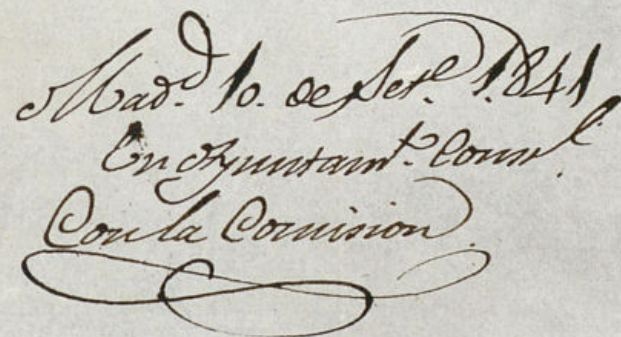 Mad.d 10. de Set.e 1.841
En Ayuntam.to Const.l
Con la Comision